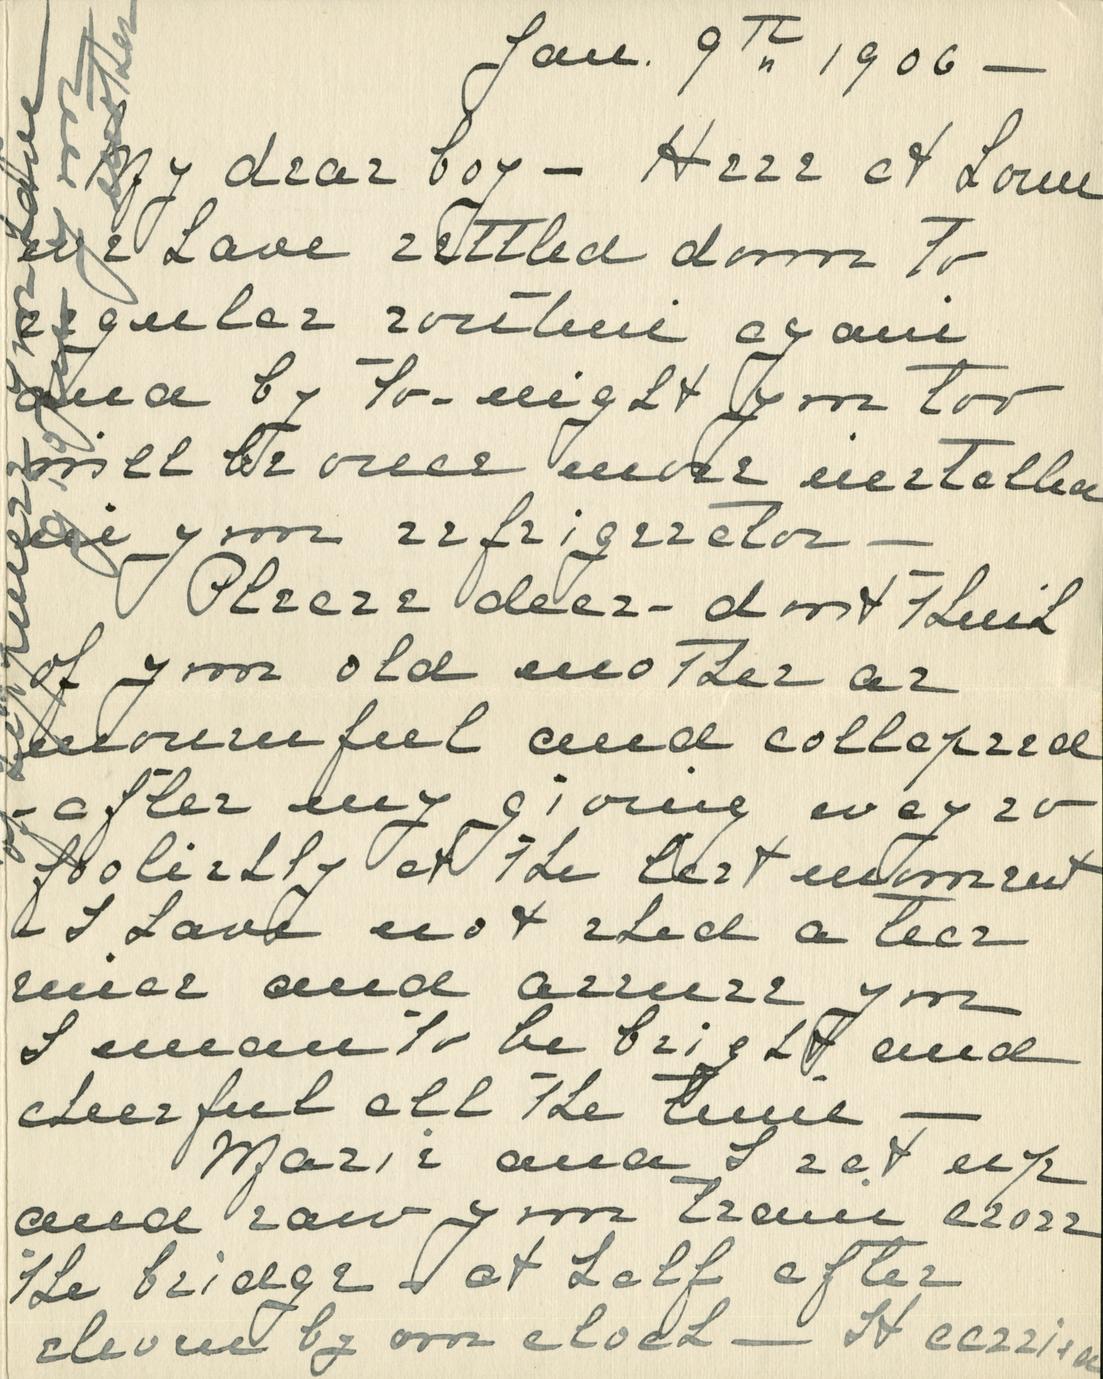 Jan. 9th 1906 —
My dear boy — Here at home
we have settled down to
regular routine again
and by to-night you too
will be once more installed
in your refrigerator —
Please dear - don't think
of your old mother as
mournful and collapsed
- after my giving way so
foolishly at the last moment
- I have not shed a tear
since and assure you
I mean to be bright and
cheerful all the time —
Marie and I sat up
and saw your train cross
the bridge - at half after
eleven by our clock — It carried